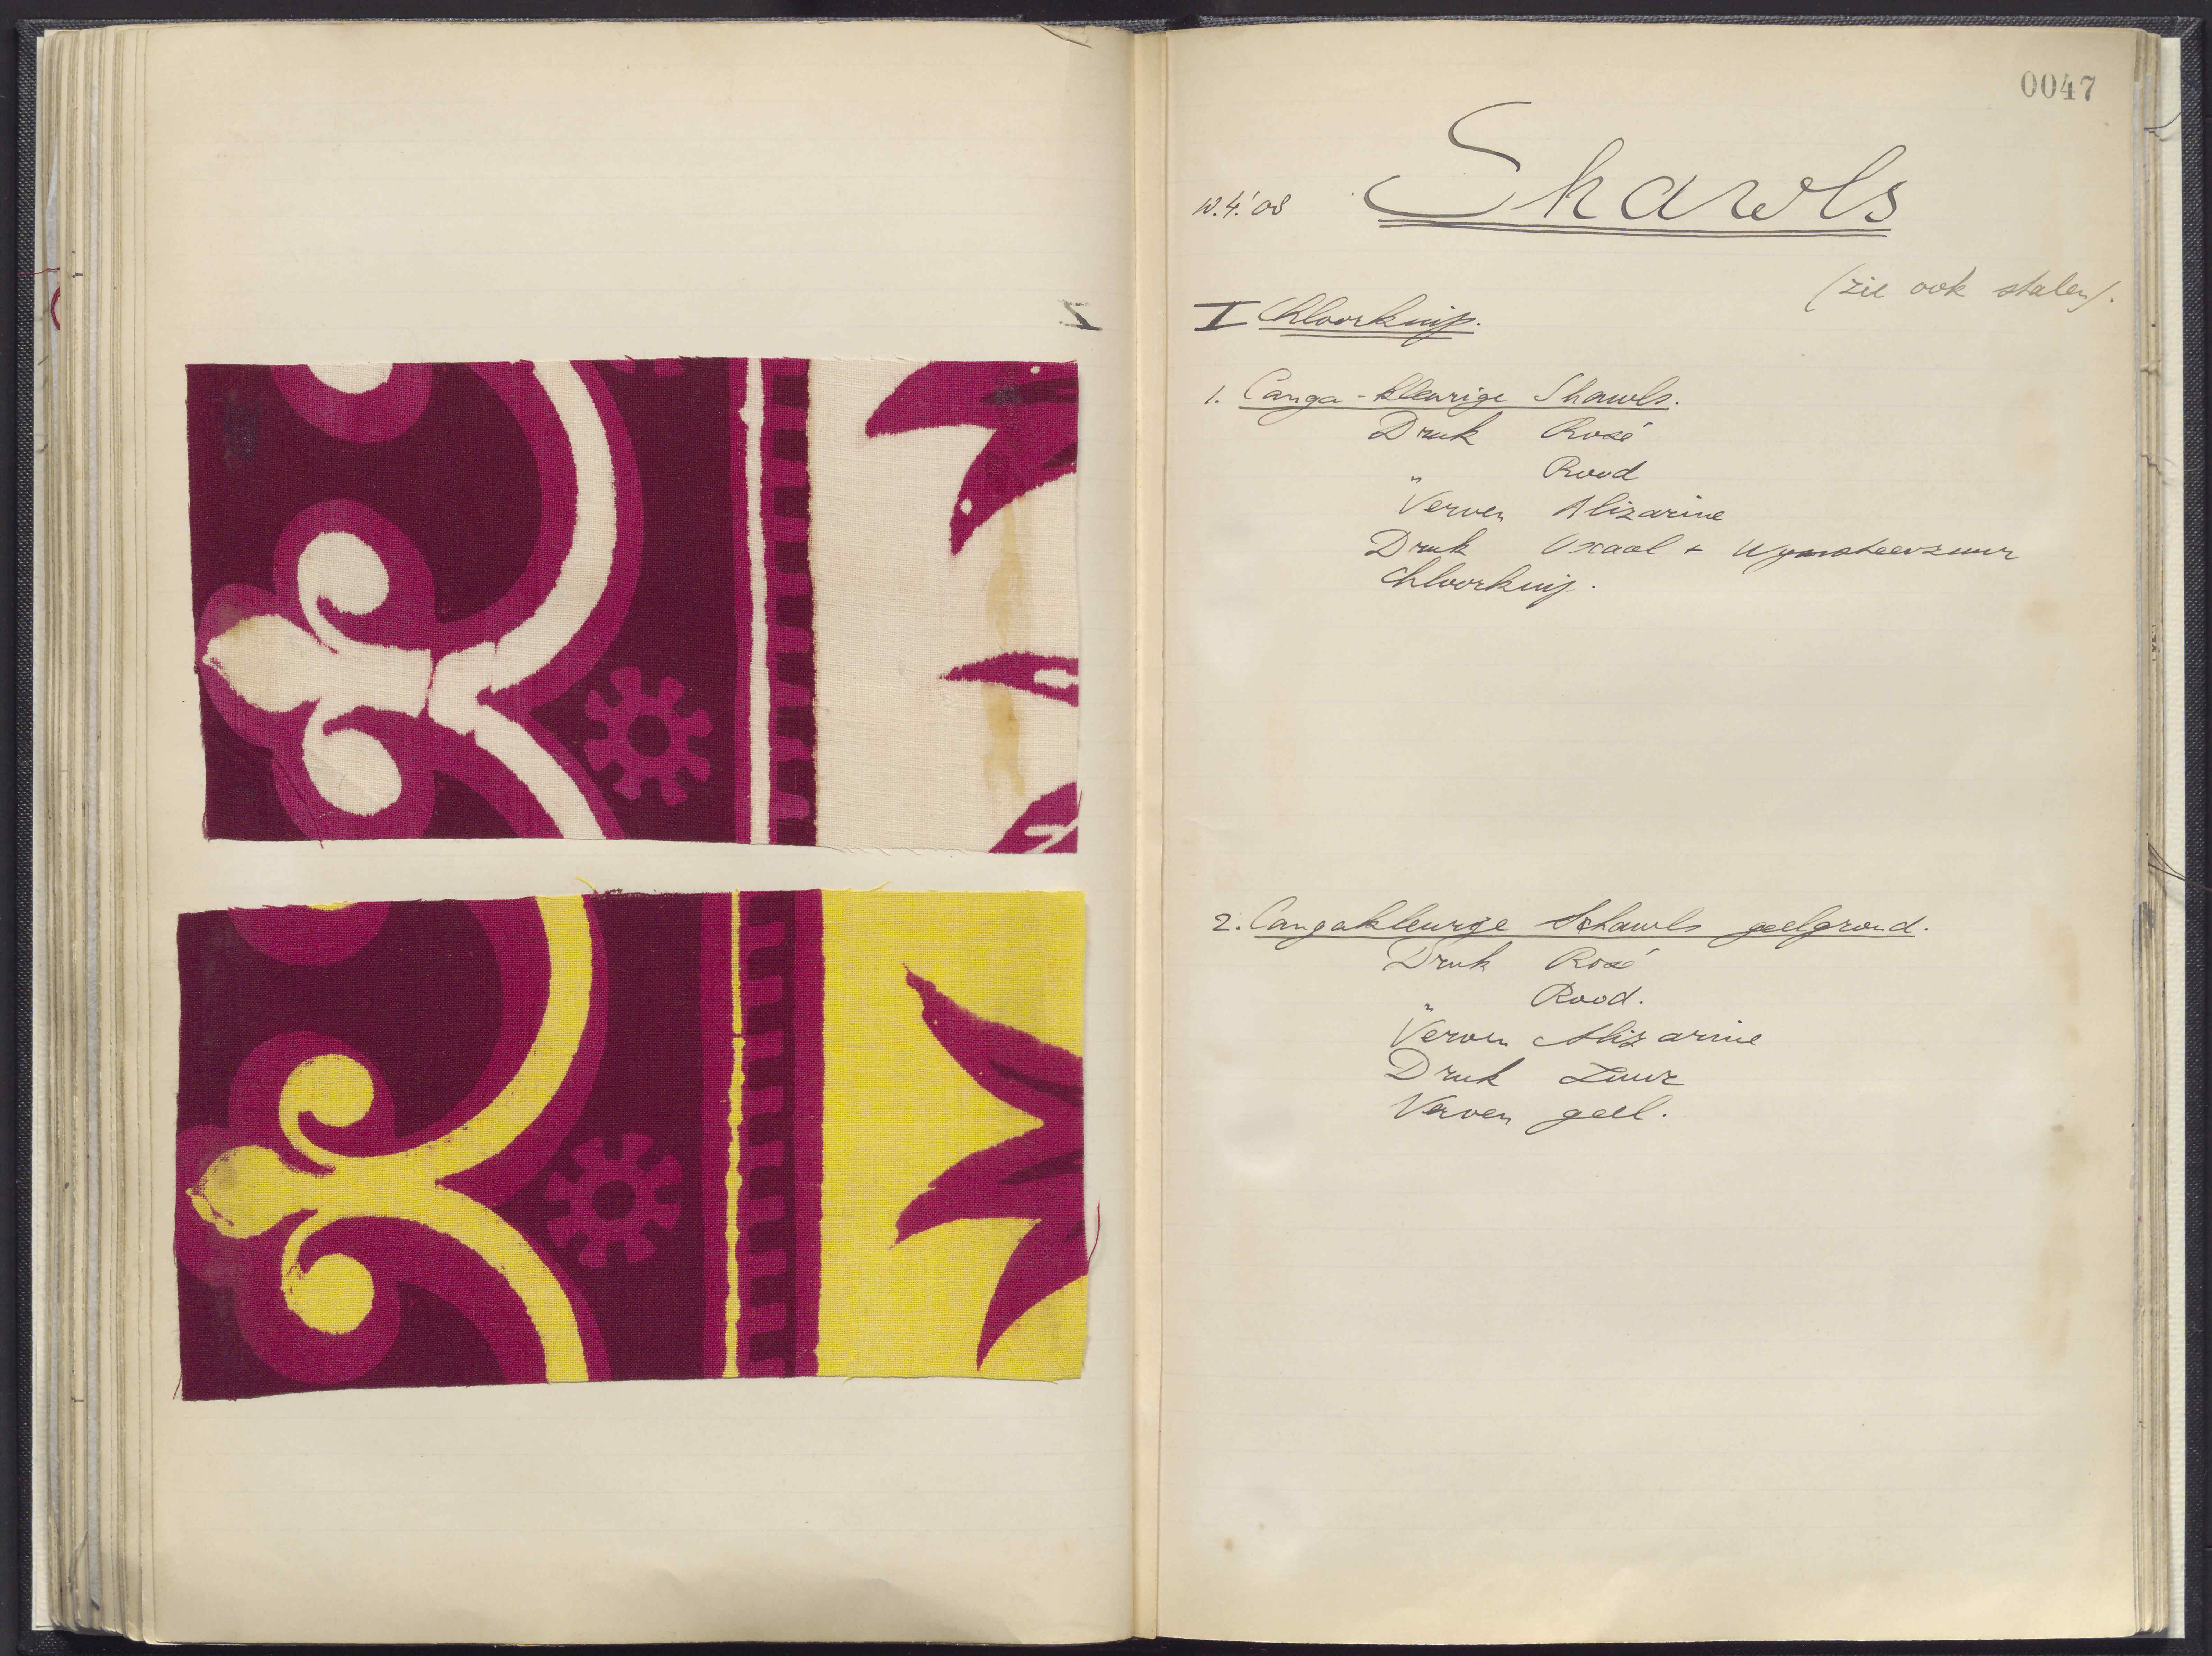 0047
Shawls
10.4.'08
(zie ook stalen).
I Chloorkuip.
1. Canga-kleurige Shawls.
Druk Rosé
" Rood
Verven Alizarine
Druk Oxaal + Wynsteenzuur
Chloorkuip.
2. Cangakleurige Shawls geelgrond.
Druk Rosé
" Rood.
Verven Alizarine
Druk Zuur
Verven geel.